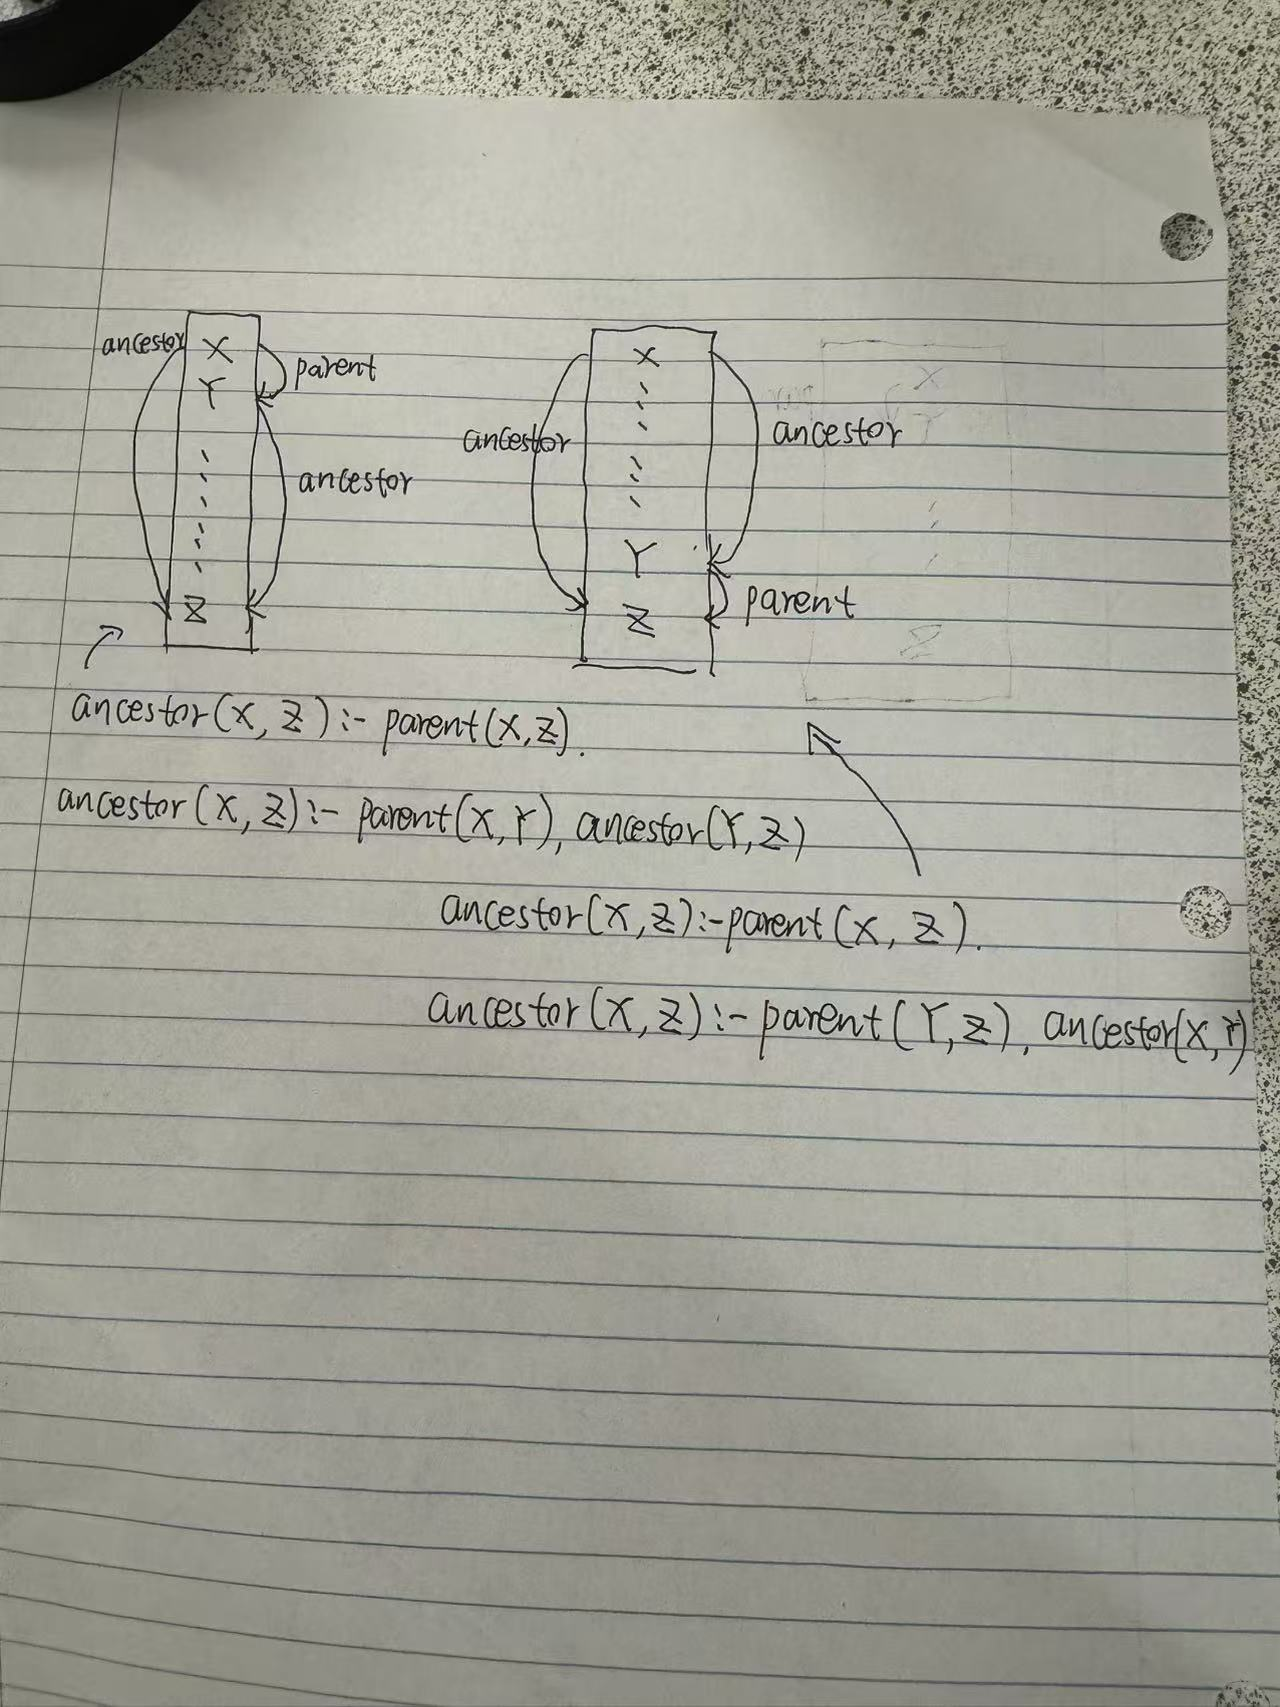 ancestor X parent
Y
ancestor
Z
X
ancestor ancestor
Y
Z parent
ancestor(X, Z) :- parent(X,Z).
ancestor(X, Z) :- parent(X, Y), ancestor(Y, Z)
ancestor(X, Z) :- parent(X, Z).
ancestor(X, Z) :- parent(Y, Z), ancestor(X, Y)